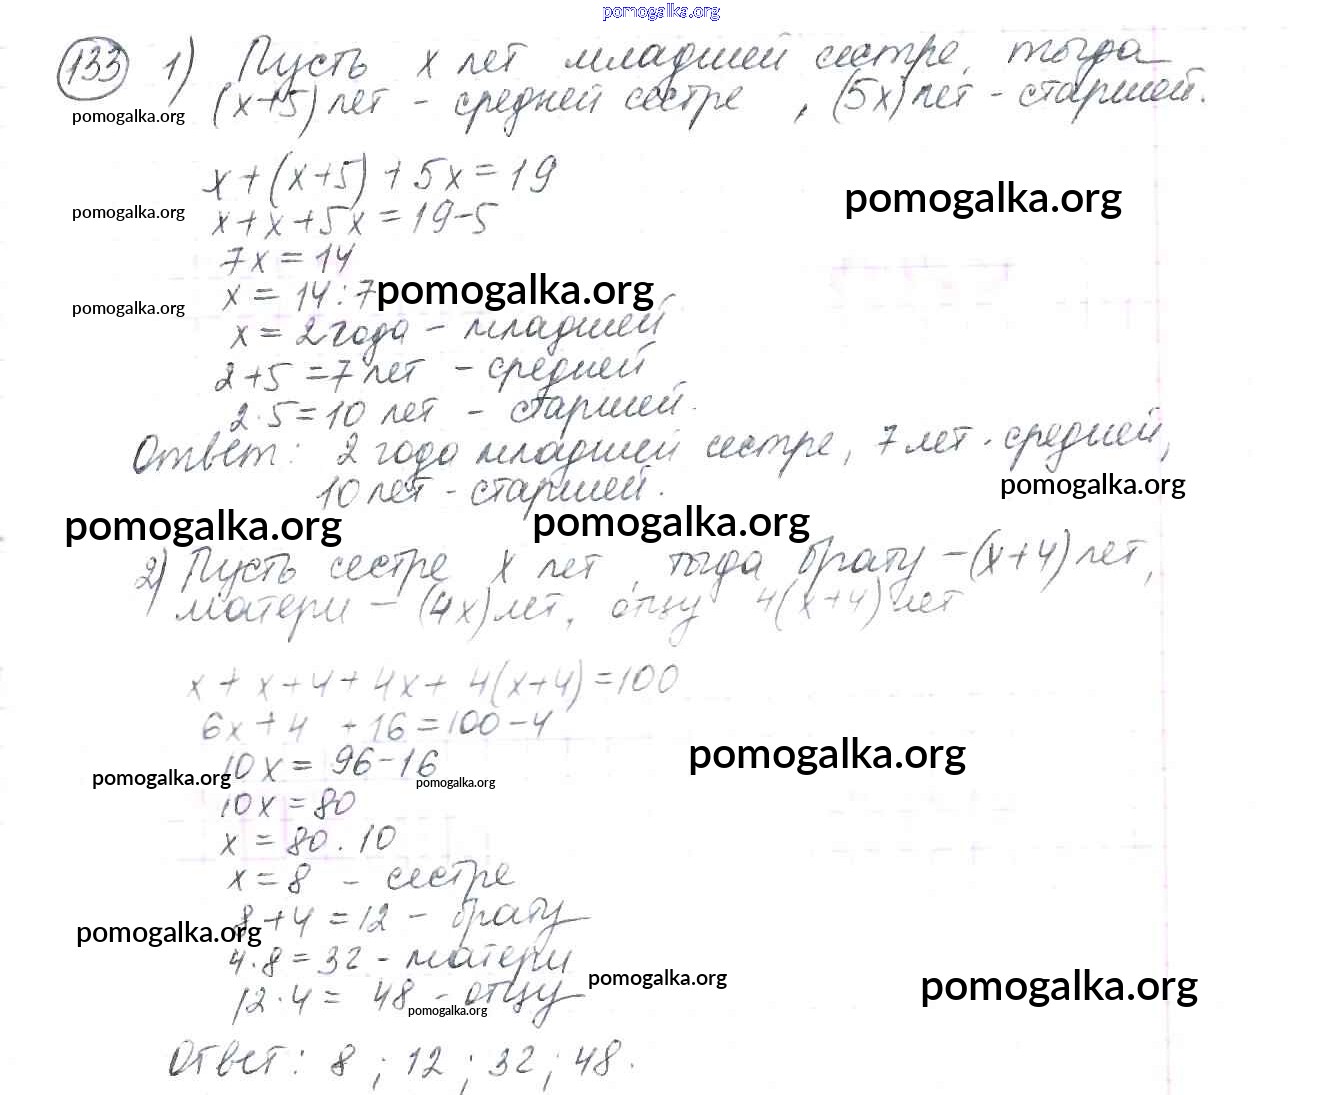 pomogalka.org
133 1) Пусть x лет младшей сестре, тогда
(x+5) лет - средней сестре , (5x) лет - старшей.
pomogalka.org
x+(x+5)+5x=19
pomogalka.org
pomogalka.org
x+x+5x=19-5
7x=14
x=14:7
pomogalka.org
pomogalka.org
x=2 года - младшей
2+5=7 лет - средней
2·5=10 лет - старшей.
Ответ: 2 года младшей сестре, 7 лет - средней,
10 лет - старшей.
pomogalka.org
pomogalka.org
pomogalka.org
2) Пусть сестре x лет, тогда брату -(x+4) лет,
матери - (4x) лет, отцу 4(x+4) лет
x+x+4+4x+4(x+4)=100
6x+4 +16=100-4
pomogalka.org
10x=96-16
pomogalka.org
pomogalka.org
10x=80
x=80.10
x=8 - сестре
8+4=12 - брату
pomogalka.org
4·8=32 - матери
pomogalka.org
pomogalka.org
12·4= 48 - отцу
pomogalka.org
Ответ: 8 ; 12 ; 32 ; 48.